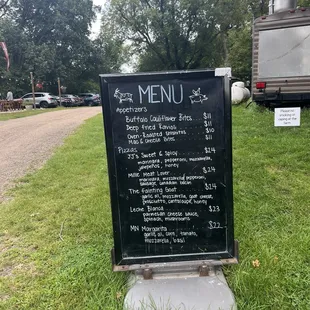 MENU
Appetizers
Buffalo Cheese Bites $11
Deep Fried Ravioli $11
Oven-Roasted Wings $10
Mac & Cheese Bites $11
Pizzas
JJ's Sweet & Spicy $24
marinara, pepperoni, mozzarella,
jalapeños, honey
MN Meat Lover $24
marinara, mozzarella, pepperoni,
sausage, canadian bacon
The Fainting Goat $24
garlic oil, mozzarella, goat cheese,
prosciutto, cantaloupe, honey
Leche Blanca $23
parmesan cheese sauce,
spinach, mushrooms
MN Margarita $22
garlic oil, corn, tomato,
mozzarella, basil